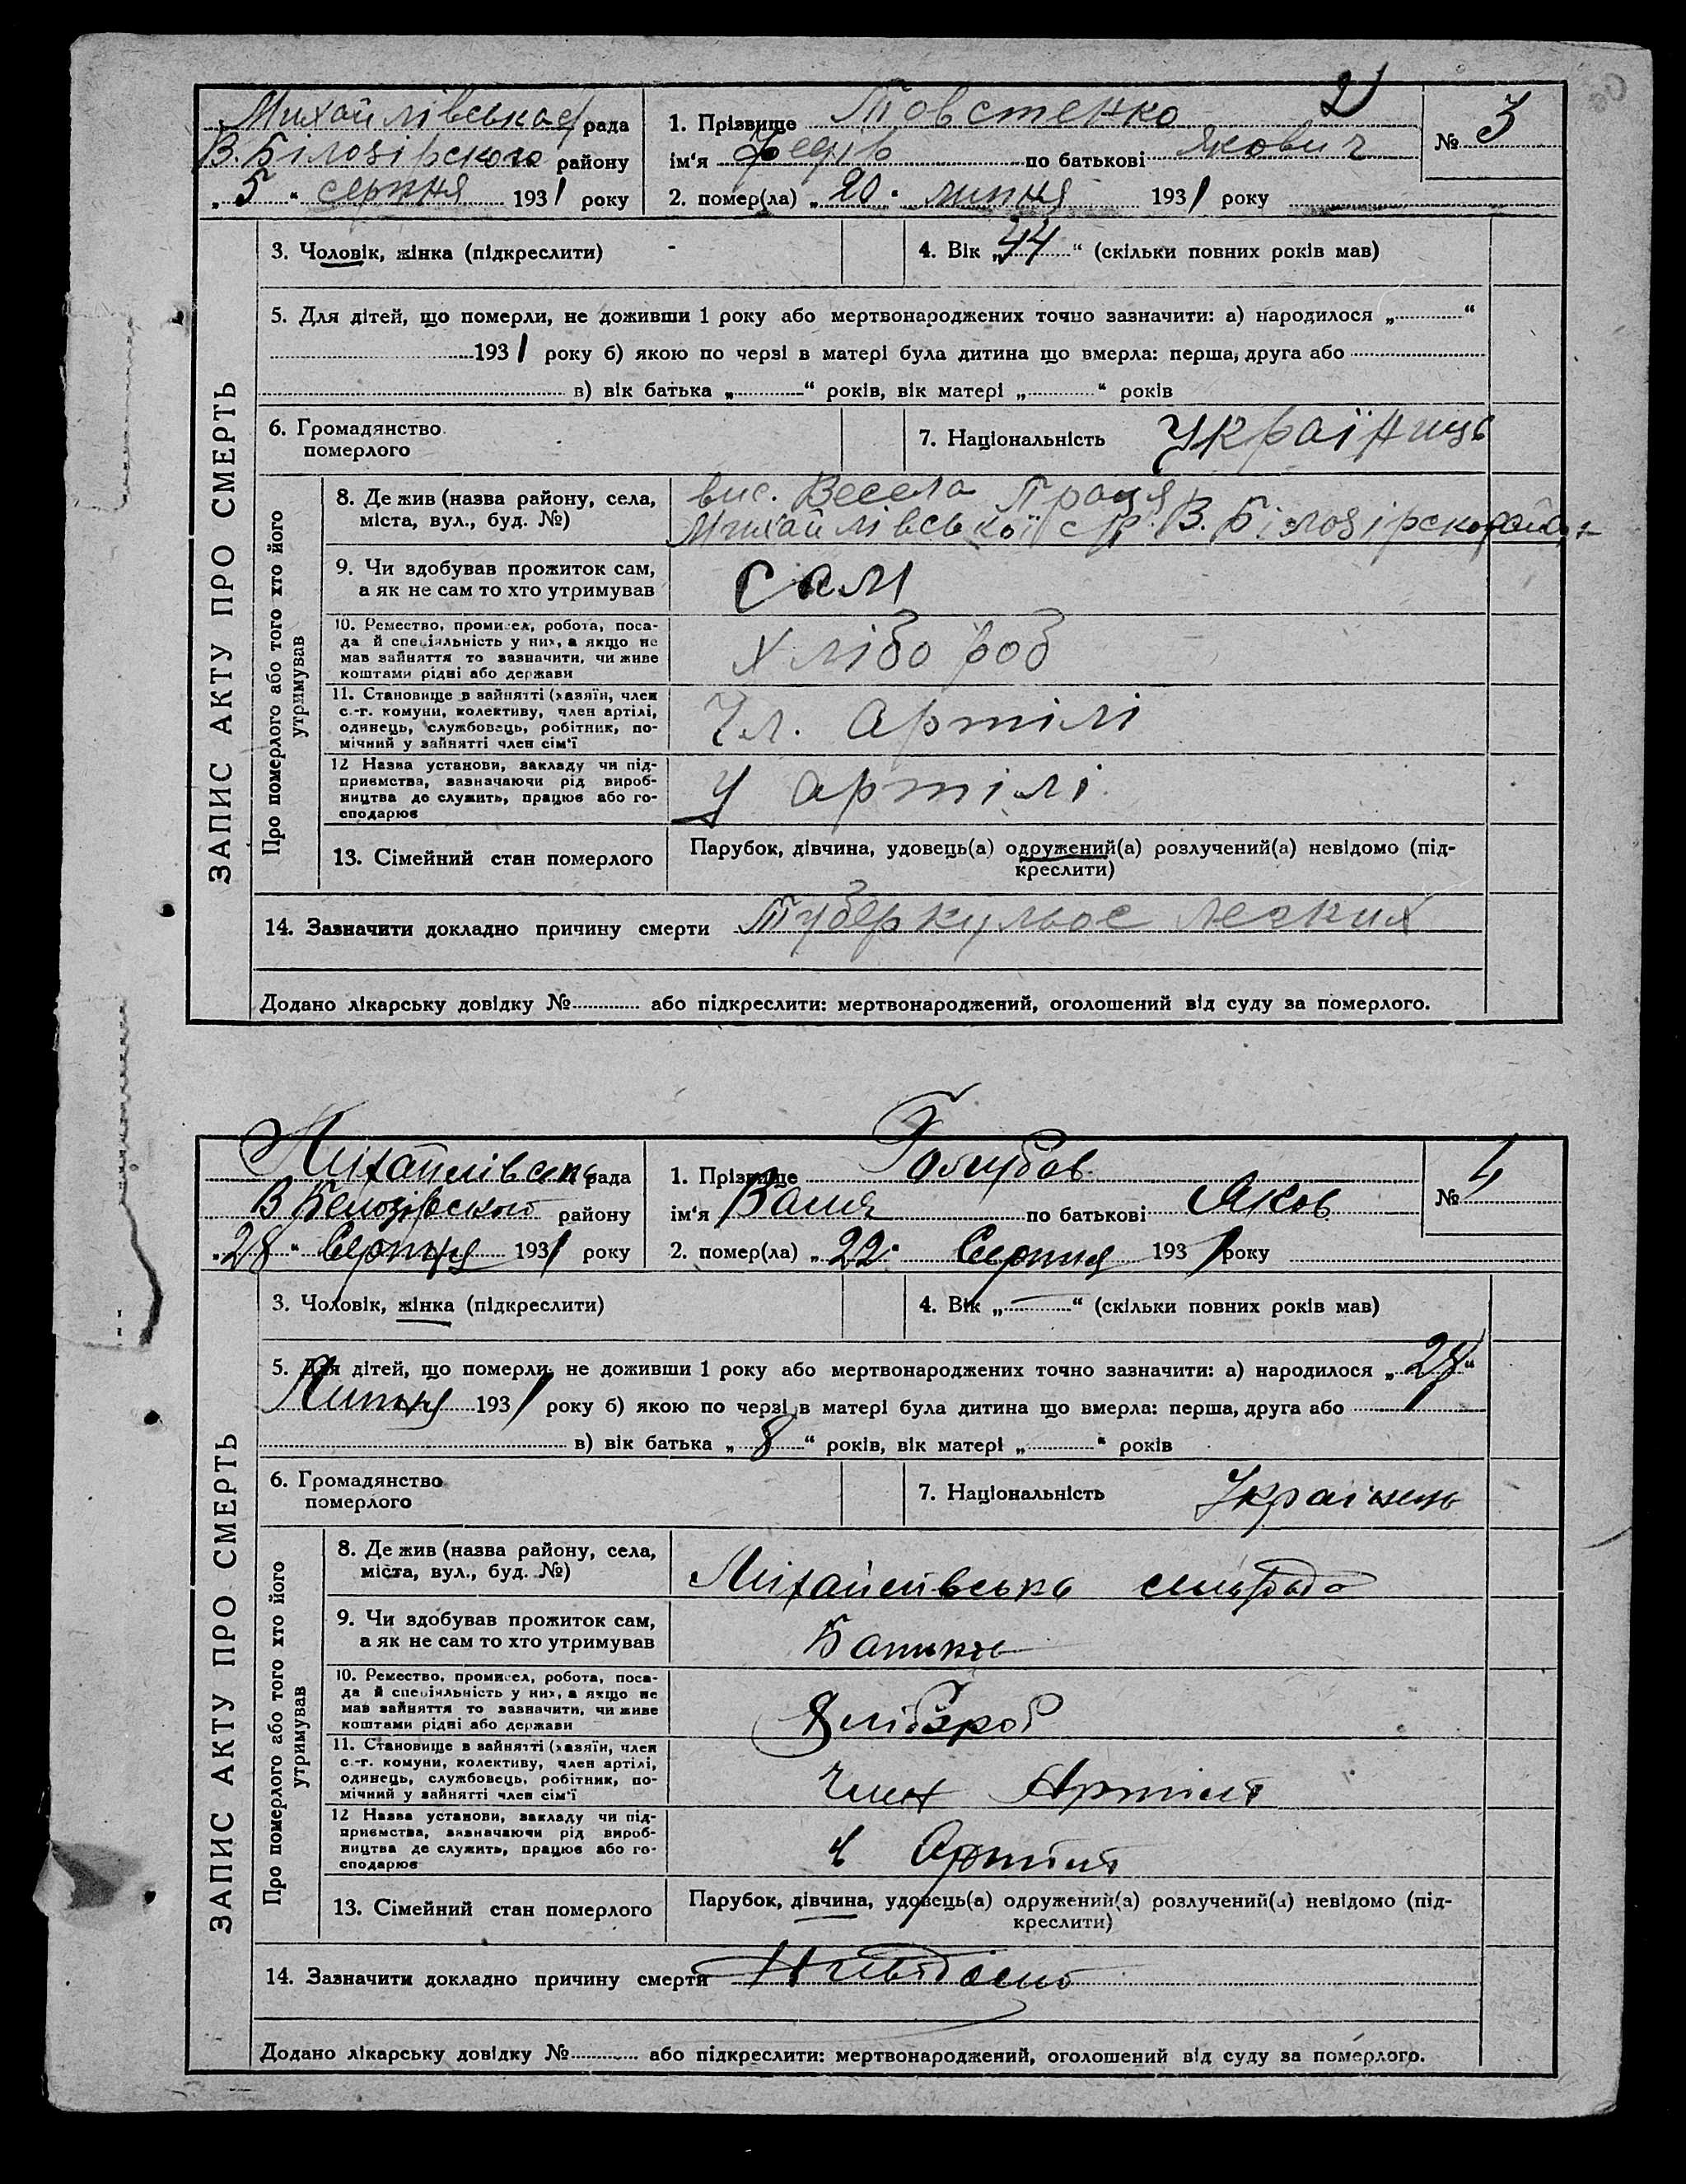 2
Михайлівська с/рада 1. Прізвище Товстенко
№ 3
В. Білозірского району ім'я Федір по батькові Якович
„5“ серпня 1931 року 2. помер(ла) „20“ липня 1931 року
3. Чоловік, жінка (підкреслити) 4. Вік „44“ (скільки повних років мав)
5. Для дітей, що померли, не доживши 1 року або мертвонароджених точно зазначити: а) народилося „ “
1931 року б) якою по черзі в матері була дитина що вмерла: перша, друга або
в) вік батька „ “ років, вік матері „ “ років
6. Громадянство
померлого
7. Національність Українець
ЗАПИС АКТУ ПРО СМЕРТЬ
Про померлого або того хто його
утримував
8. Де жив (назва району, села,
міста, вул., буд. №)
вис. Весела Праця
Михайлівської с/р. В. Білозірск. району
9. Чи здобував прожиток сам,
а як не сам то хто утримував
сам
10. Ремество, промисел, робота, поса-
да й спеціяльність у них, а якщо не
мав зайняття то зазначити, чи живе
коштами рідні або держави
хлібороб
11. Становище в зайнятті (хазяїн, член
с.-г. комуни, колективу, член артілі,
одинець, службовець, робітник, по-
мічний у зайнятті член сім'ї
Чл. артілі
12 Назва установи, закладу чи під-
приємства, зазначаючи рід вироб-
ництва де служить, працює або го-
сподарює
У артілі
13. Сімейний стан померлого
Парубок, дівчина, удовець(а) одружений(а) розлучений(а) невідомо (під-
креслити)
14. Зазначити докладно причину смерти Туберкульос легких
Додано лікарську довідку № або підкреслити: мертвонароджений, оголошений від суду за померлого.
Міхайлівськ рада 1. Прізвище Голубов
№ 4
В Белозірського району ім'я Валя по батькові Яков
„28“ Серпня 1931 року 2. помер(ла) „22“ Серпня 1931 року
3. Чоловік, жінка (підкреслити) 4. Вік „—“ (скільки повних років мав)
5. Для дітей, що померли, не доживши 1 року або мертвонароджених точно зазначити: а) народилося „28“
Липня 1931 року б) якою по черзі в матері була дитина що вмерла: перша, друга або
в) вік батька „8“ років, вік матері „ “ років
6. Громадянство
померлого
7. Національність Українець
ЗАПИС АКТУ ПРО СМЕРТЬ
Про померлого або того хто його
утримував
8. Де жив (назва району, села,
міста, вул., буд. №)
Міхайлівська сільрада
9. Чи здобував прожиток сам,
а як не сам то хто утримував
Батьки
10. Ремество, промисел, робота, поса-
да й спеціяльність у них, а якщо не
мав зайняття то зазначити, чи живе
коштами рідні або держави
Хлібороб
11. Становище в зайнятті (хазяїн, член
с.-г. комуни, колективу, член артілі,
одинець, службовець, робітник, по-
мічний у зайнятті член сім'ї
Член Артілі
12 Назва установи, закладу чи під-
приємства, зазначаючи рід вироб-
ництва де служить, працює або го-
сподарює
в Артілі
13. Сімейний стан померлого
Парубок, дівчина, удовець(а) одружений(а) розлучений(а) невідомо (під-
креслити)
14. Зазначити докладно причину смерти
Додано лікарську довідку № або підкреслити: мертвонароджений, оголошений від суду за померлого.